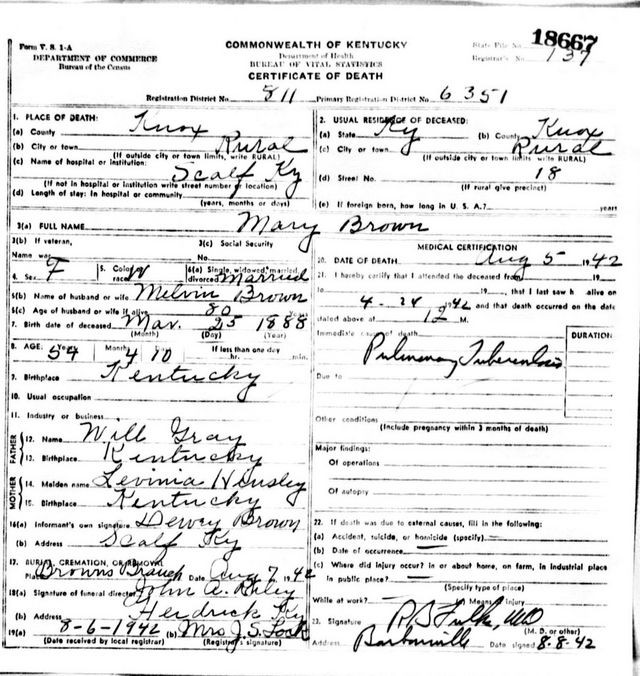 Form V. S. 1-A
DEPARTMENT OF COMMERCE
Bureau of the Census
COMMONWEALTH OF KENTUCKY
Department of Health
BUREAU OF VITAL STATISTICS
CERTIFICATE OF DEATH
State File No. 18667
Registrar's No. 137
Registration District No. 511 Primary Registration District No. 6351
1. PLACE OF DEATH:
(a) County Knox
(b) City or town Rural
(If outside city or town limits, write RURAL)
(c) Name of hospital or institution:
Scalf Ky
(If not in hospital or institution write street number or location)
(d) Length of stay: In hospital or community
(years, months or days)
2. USUAL RESIDENCE OF DECEASED:
(a) State Ky (b) County Knox
(c) City or town Rural
(If outside city or town limits, write RURAL)
(d) Street No. 18
(If rural give precinct)
(e) If foreign born, how long in U. S. A.? years
3(a) FULL NAME Mary Brown
3(b) If veteran, 3(c) Social Security
Name war No.
4. Sex F 5. Color or race W 6(a) Single, widowed, married, divorced Married
5(b) Name of husband or wife Melvin Brown
5(c) Age of husband or wife if alive 80 years
7. Birth date of deceased Mar. 25 1888
(Month) (Day) (Year)
8. AGE: Years 54 Months 4 10 If less than one day
hr. min.
9. Birthplace Kentucky
10. Usual occupation
11. Industry or business
FATHER
12. Name Will Gray
13. Birthplace Kentucky
MOTHER
14. Maiden name Levinia Hensley
15. Birthplace Kentucky
16(a) Informant's own signature Dewey Brown
(b) Address Scalf Ky
17. BURIAL, CREMATION, OR REMOVAL
Place Browns Branch Date Aug 7 1942
18(a) Signature of funeral director John A. Riley
(b) Address Hedrick Ky
19(a) 8-6-1942 (b) Mrs J. S. Lock
(Date received by local registrar) (Registrar's signature)
MEDICAL CERTIFICATION
20. DATE OF DEATH Aug 5 1942
21. I hereby certify that I attended the deceased from 19
to 19, that I last saw h alive on
4-24 1942 and that death occurred on the date
stated above at 12 M.
Immediate cause of death DURATION
Pulmonary Tuberculosis
Due to
Other conditions
(Include pregnancy within 3 months of death)
Major findings:
Of operations
Of autopsy
22. If death was due to external causes, fill in the following:
(a) Accident, suicide, or homicide (specify)
(b) Date of occurrence
(c) Where did injury occur? in or about home, on farm, in industrial place
in public place?
(Specify type of place)
While at work? (e) Means of injury
23. Signature R B Fulks, MD
(M. D. or other)
Address Barbourville Date signed 8-8-42